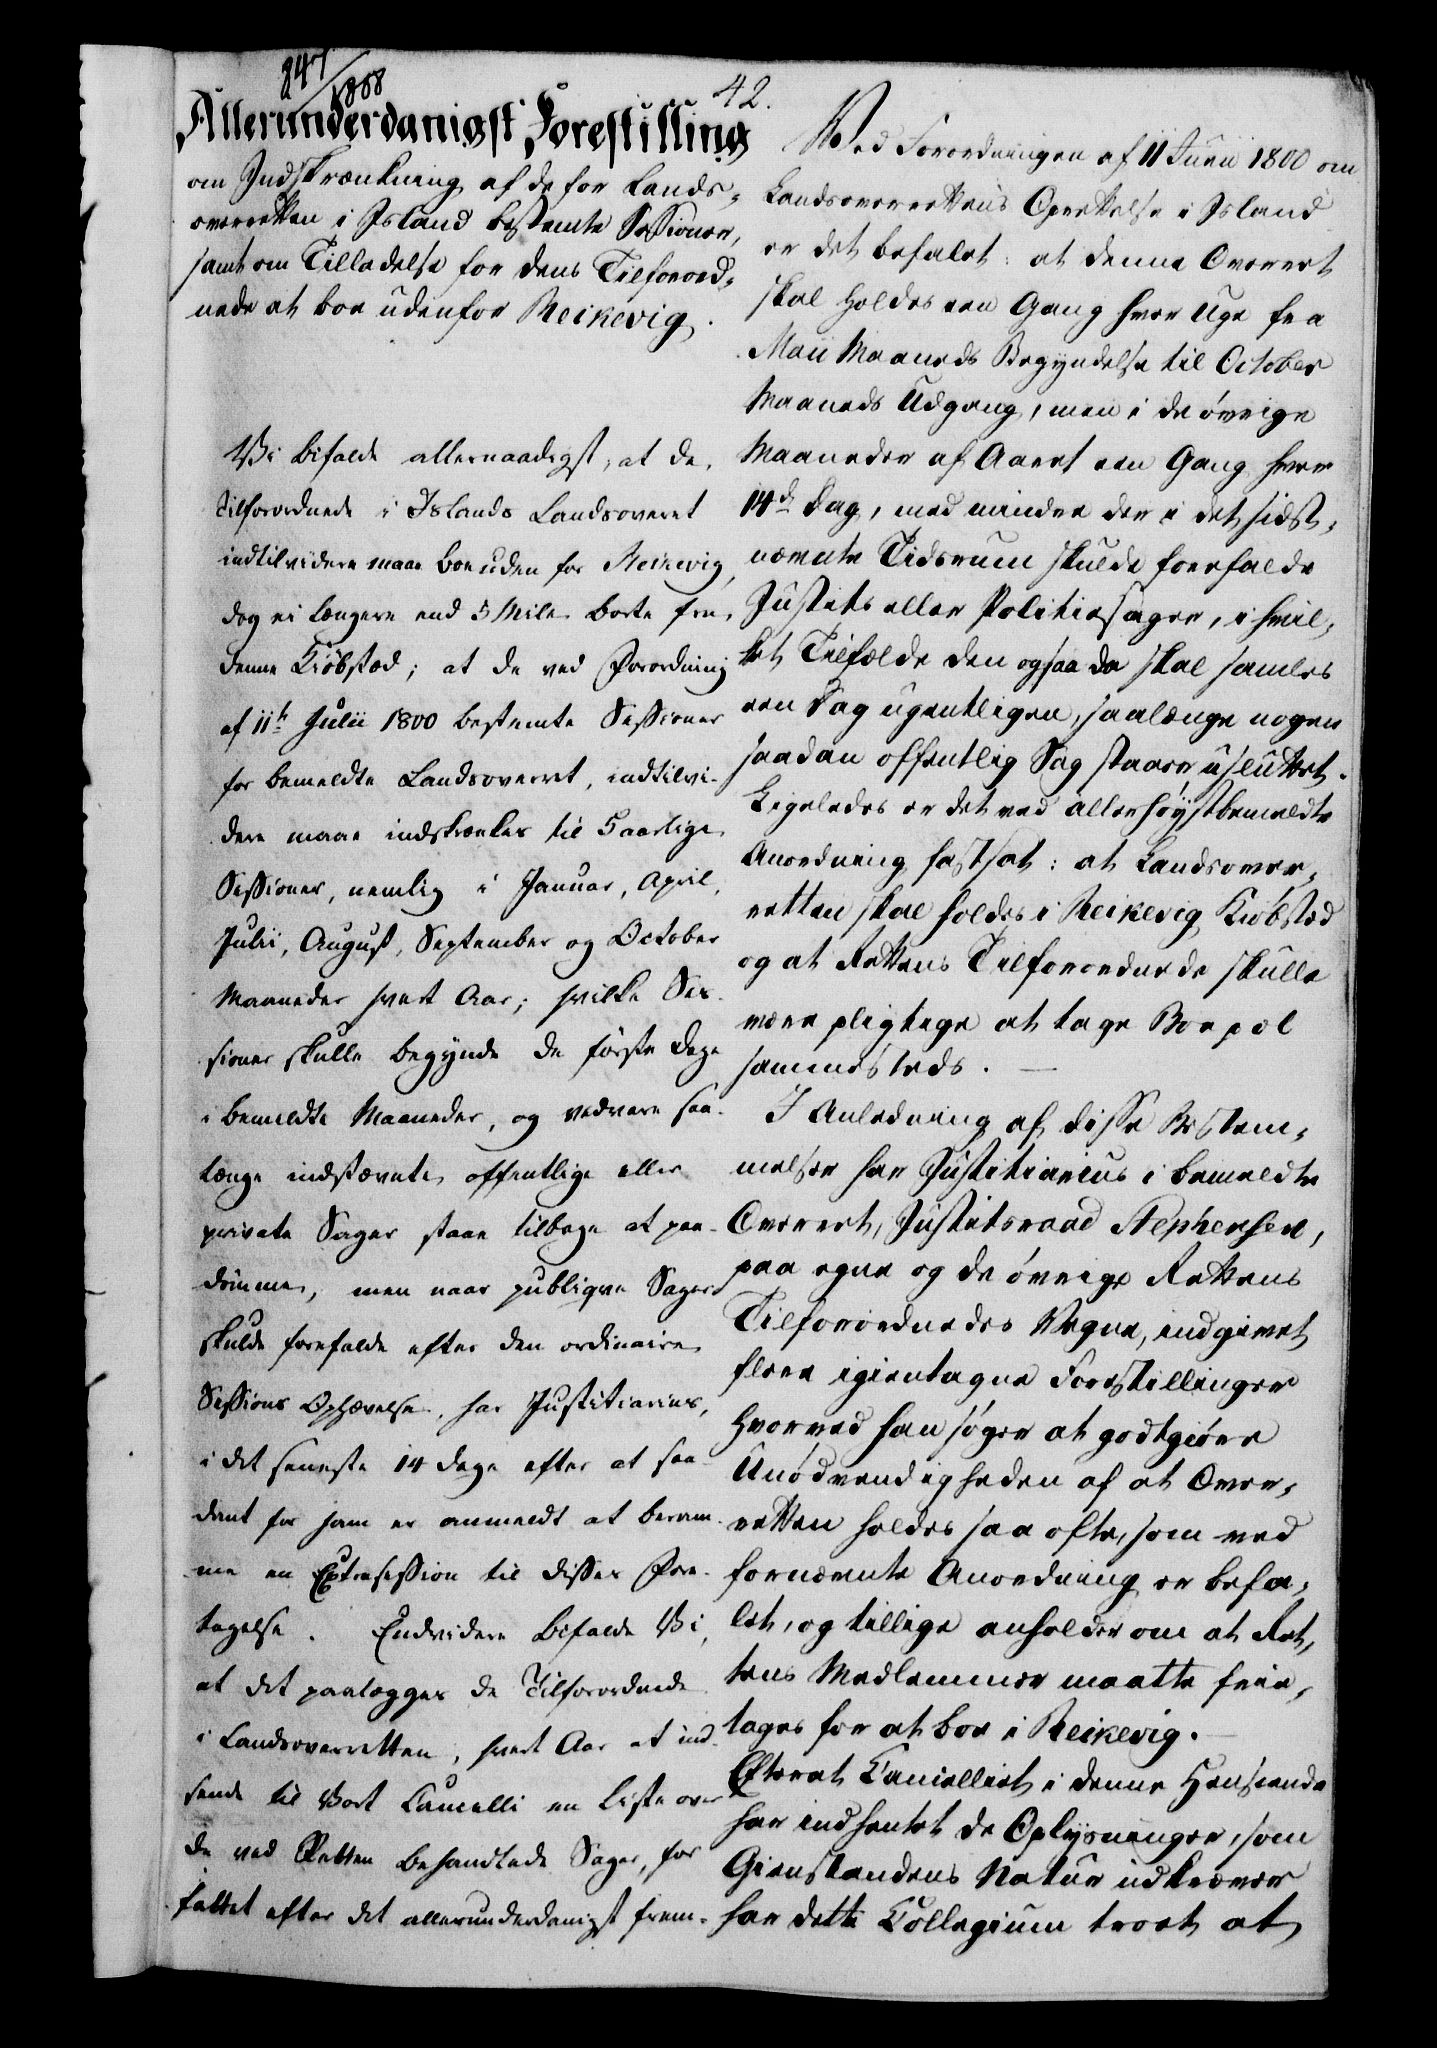 847/1808
42.
Allerunderdanigst Forestilling
om Indskrænkning af de for Lands-
overretten i Island bestemte Sessioner,
samt om Tilladelse for dens Tilforord-
nede at boe udenfor Reikevig.
Vi bifalde allernaadigst, at de
Tilforordnede i Islands Landsoverret
indtilvidere maae boe uden for Reikevig,
dog ei længere end 5 Mile borte fra
denne Kiøbstæd; at de ved Forordning
af 11te Julii 1800 bestemte Sessioner
for bemeldte Landsoverret, indtilvi-
dere maae indskrænkes til 5 aarlige
Sessioner, nemlig i Januar, April,
Julii, August, September og October
Maaneder hvert Aar; hvilke Ses-
sioner skulle begynde de første Dage
i bemeldte Maaneder, og vedvare saa-
længe indstævnte offentlige eller
private Sager staae tilbage at paa-
dømme, men naar publiqve Sager
skulde forefalde efter den ordinaire
Sessions Ophævelse, har Justitiarius,
i det seneste 14 Dage efter at saa-
dant for ham er anmeldt at beram-
me en Extrasession til disses Fore-
tagelse. Endvidere bifalde Vi,
at det paalægges de Tilforordnede
i Landsoverretten, hvert Aar at ind-
sende til Vort Cancelli en Liste over
de ved Retten behandlede Sager, for-
fattet efter det allerunderdanigst frem-
Ved Forordningen af 11 Julii 1800 om
Landsoverrettens Oprettelse i Island
er det befalet: at denne Overret
skal holdes een Gang hver Uge fra
Maii Maaneds Begyndelse til October
Maaneds Udgang, men i de øvrige
Maaneder af Aaret een Gang hver
14de Dag, med mindre der i det sidst-
nævnte Tidsrum skulde forefalde
Justits eller Politiesager, i hvil-
ket Tilfælde den ogsaa da skal samles
een Dag ugentligen, saalænge nogen
saadan offentlig Sag staaer usluttet.
Ligeledes er det ved allerhøystbemeldte
Anordning fastsat: at Landsover-
retten skal holdes i Reikevig Kiøbstæd
og at Rettens Tilforordnede skulle
være pligtige at tage Boepæl
sammesteds.
I Anledning af disse Bestem-
melser har Justitiarius i bemeldte
Overret, Justitsraad Stephensen,
paa egne og de øvrige Rettens
Tilforordnedes Vegne, indgivet
flere igientagne Forestillinger
hvorved han søger at godtgiøre
Unødvendigheden af at Over-
retten holdes saa ofte, som ved
fornævnte Anordning er befa-
let, og tillige anholder om at Ret-
tens Medlemmer maatte frie-
tages for at boe i Reikevig.
Efterat Cancelliet i denne Henseende
har indhentet de Oplysninger, som
Gienstandens Natur udkræver
har dette Collegium troet at